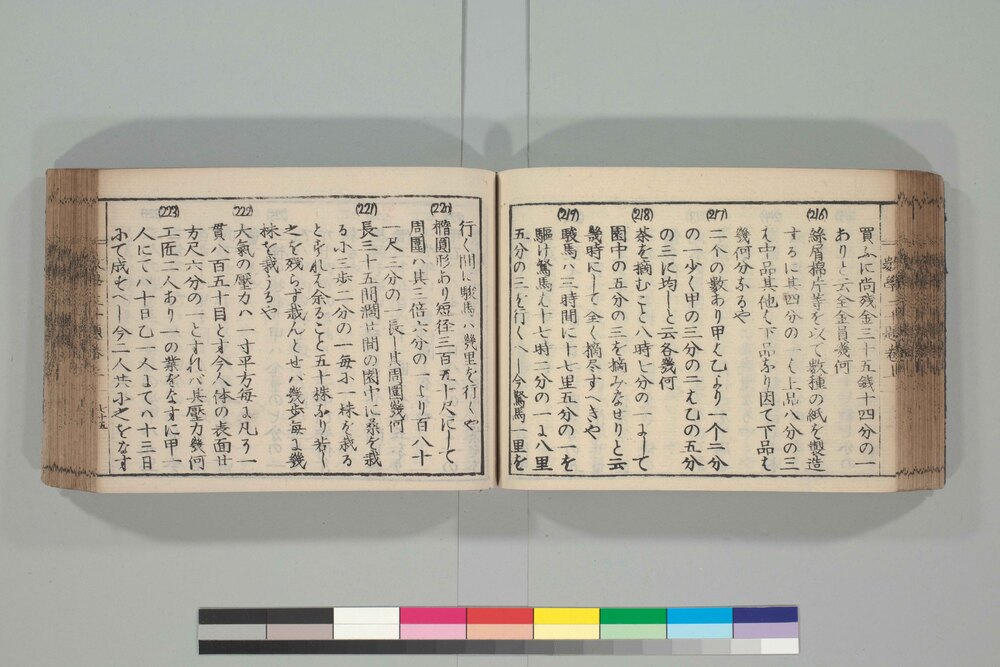 買ふに尚残金三十五銭十四分の一
ありと云全金員幾何
(216)
絲屑楮片等を以て数種の紙を製造
するに其四分の一は上品八分の三
は中品其他は下品なり因て下品は
幾何分なるや
(217)
二个の数あり甲は乙より一个二分
の一少く甲の三分の二は乙の五分
の三に均しと云各幾何
(218)
茶を摘むこと八時七分の一にして
園中の五分の三を摘みなせりと云
幾時にして全く摘尽すへきや
(219)
駿馬ハ三時間に十七里五分の一を
駆け駑馬は十七時二分の一に八里
五分の三を行くへし今駑馬一里を
行く間に駿馬ハ幾里を行くや
(220)
楕圓形あり短径三百五十尺にして
周圍ハ其三倍六分の一より百八十
一尺三分の一長し其周圍幾何
(221)
長三十五間濶廿間の園中に桑を栽
る小三歩二分の一毎小一株を栽る
ときハ余ること五十株なり若し
之を残らず栽んとせハ幾歩毎に幾
株を栽うるや
(222)
大氣の壓力ハ一寸平方毎に凡そ一
貫八百五十目とす今人体の表面廿
方尺六分の一とすれハ其壓力幾何
(223)
工匠二人あり一の業をなすに甲一
人にてハ十日乙一人にてハ十三日
小て成すへし今二人共小之をなす
七十五